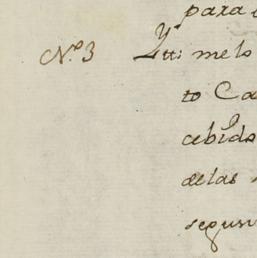 para
N.º 3 Ytt: me lo
to Ca
cebido
delas
segun